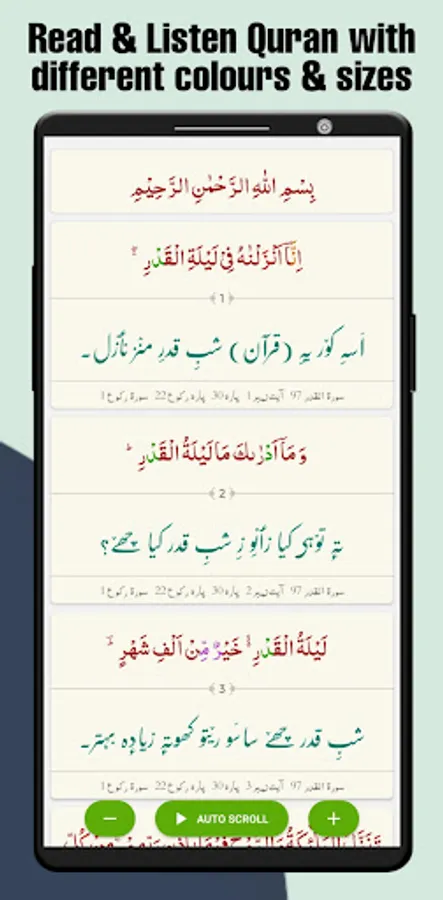 Read & Listen Quran with
different colours & sizes
بِسْمِ اللهِ الرَّحْمٰنِ الرَّحِيْمِ
اِنَّاۤ اَنْزَلْنٰهُ فِيْ لَيْلَةِ الْقَدْرِ
1
أسہِ کوٚر یہِ (قرآن) شبِ قدرِ منٛز نٲزل۔
سورۃ القدر 97 آیت نمبر 1 پارہ 30 پارہ رکوع 22 سورۃ رکوع 1
وَمَاۤ اَدْرٰىكَ مَا لَيْلَةُ الْقَدْرِ
2
تہٕ توٚہہِ کیا زٲنِو زِ شبِ قدر کیا چھےٚ؟
سورۃ القدر 97 آیت نمبر 2 پارہ 30 پارہ رکوع 22 سورۃ رکوع 1
لَيْلَةُ الْقَدْرِ خَيْرٌ مِّنْ اَلْفِ شَهْرٍ
3
شبِ قدر چھےٚ ساسَو ریٚتَو کھوتہٕ زیادٕہ بہتر۔
سورۃ القدر 97 آیت نمبر 3 پارہ 30 پارہ رکوع 22 سورۃ رکوع 1
−
AUTO SCROLL
+